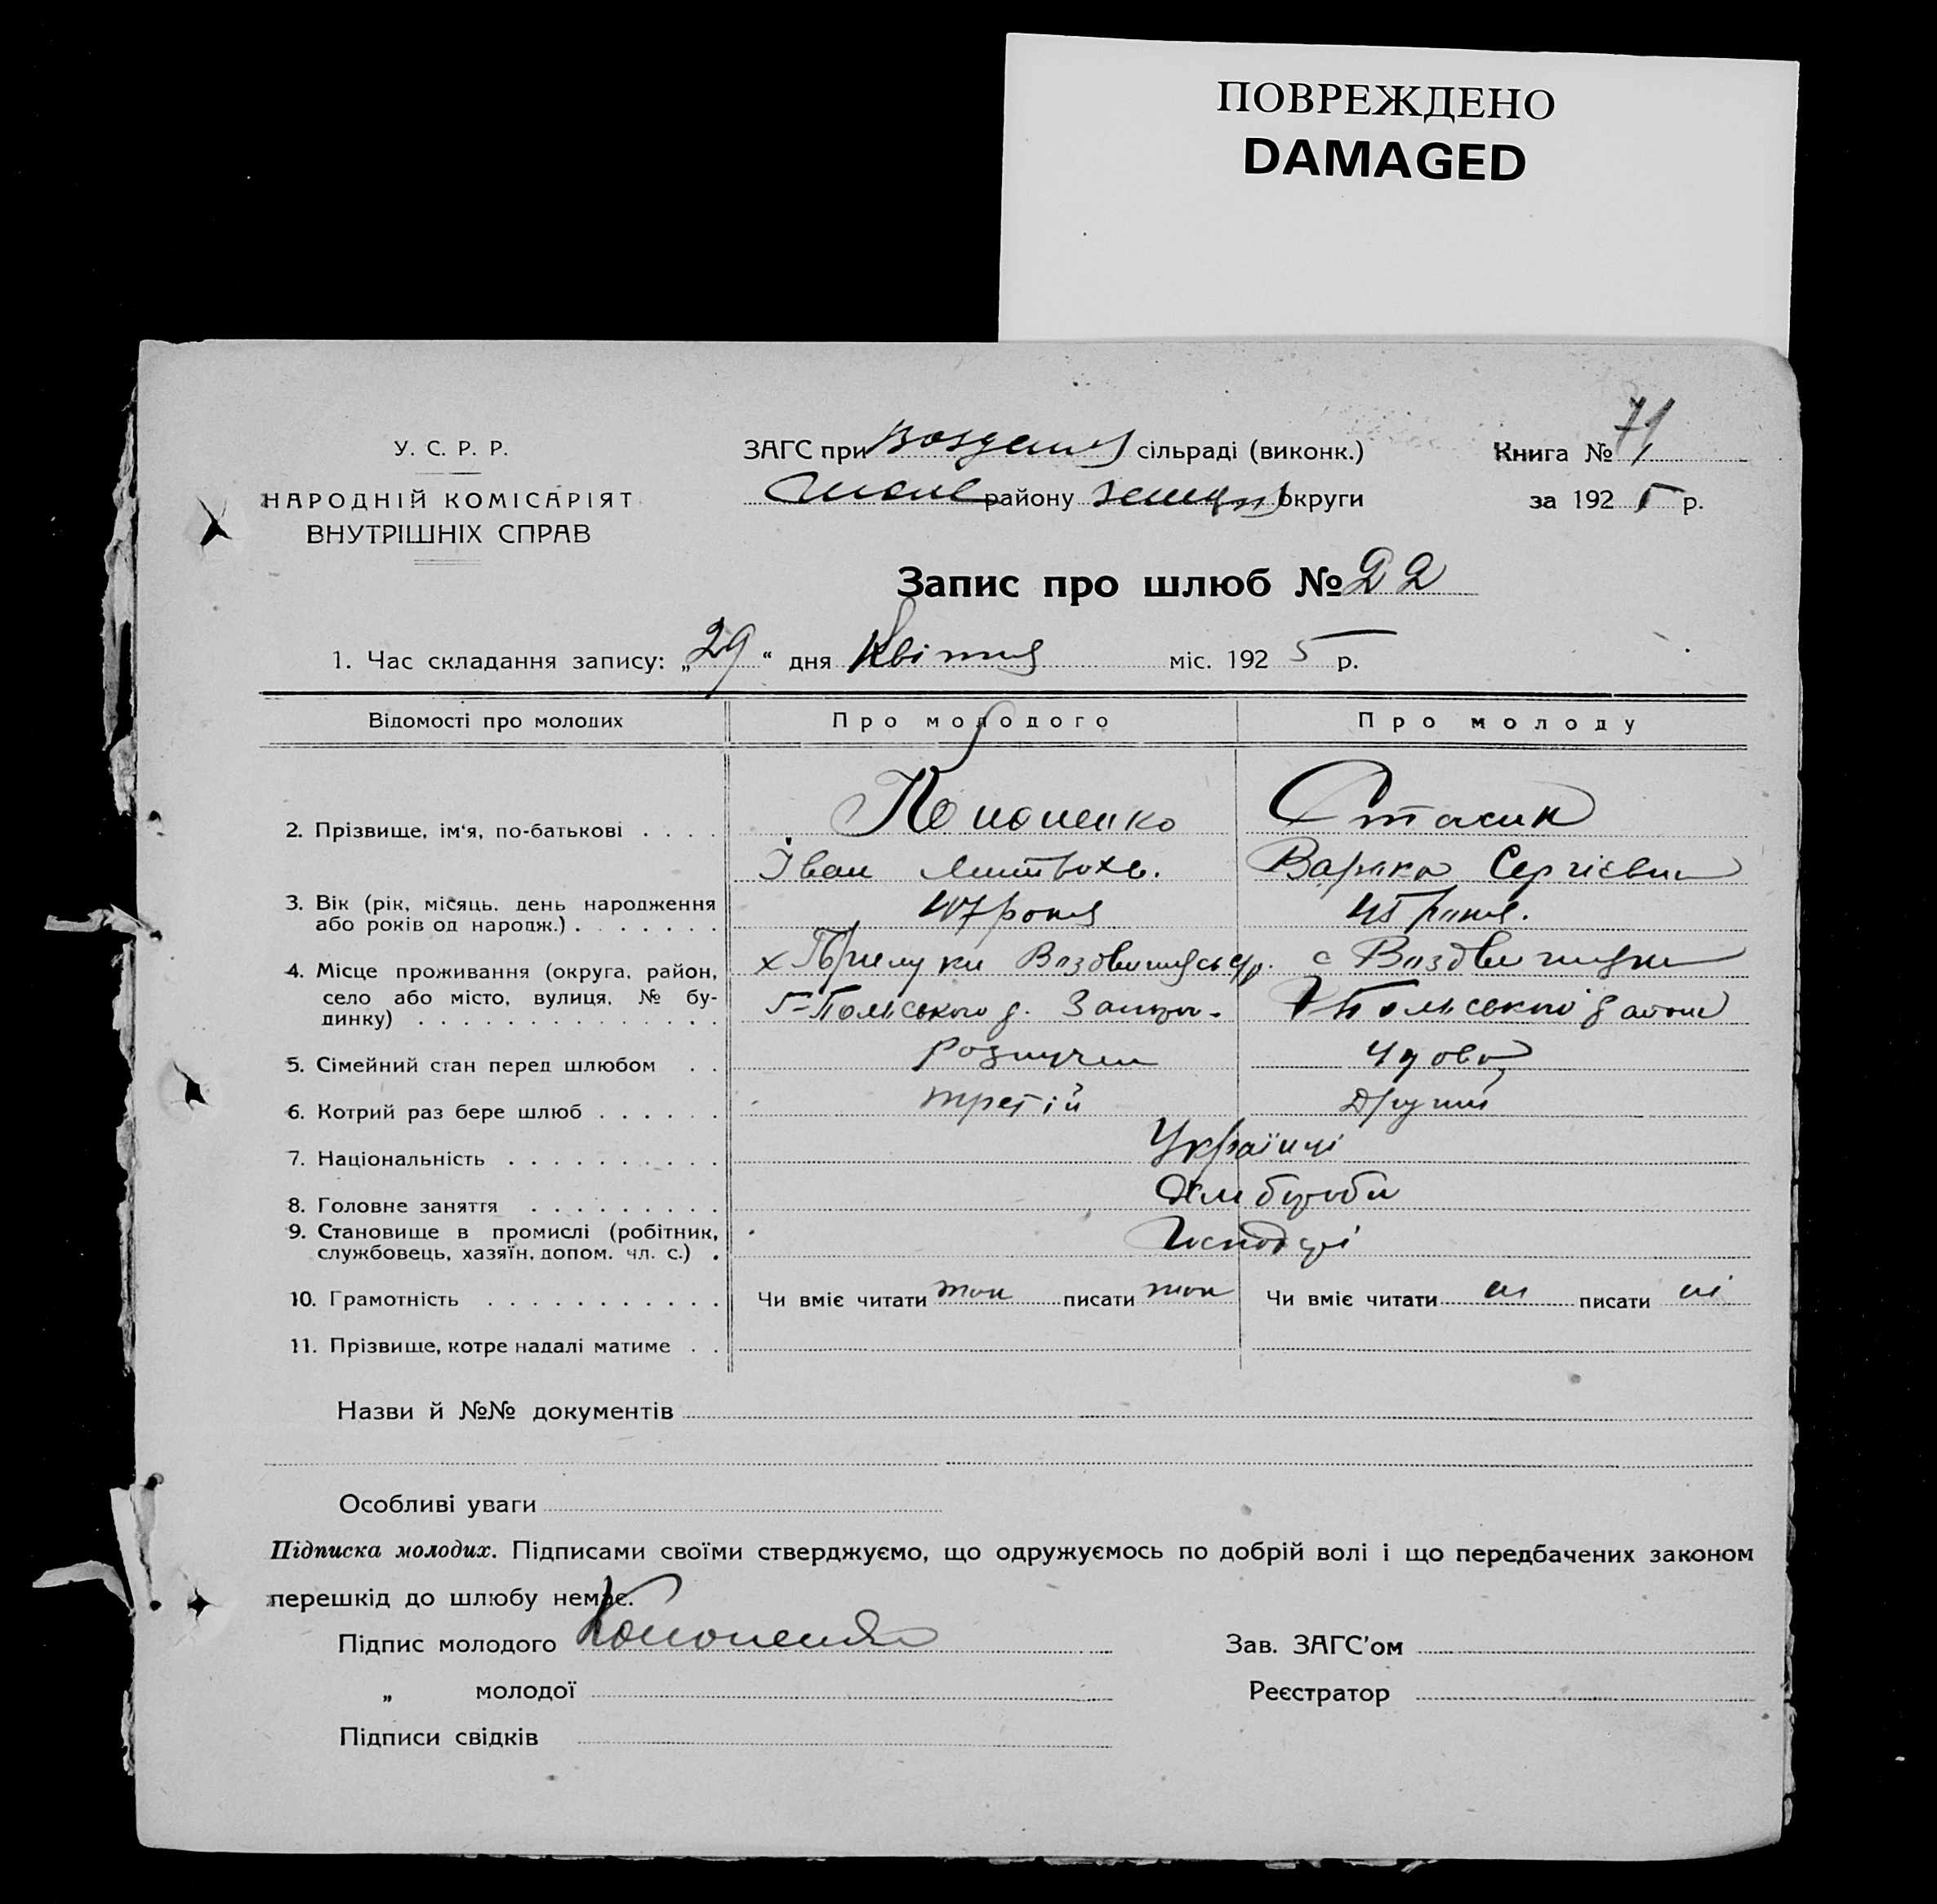 ПОВРЕЖДЕНО
DAMAGED
71
У. С. Р. Р.
НАРОДНІЙ КОМІСАРІЯТ
ВНУТРІШНІХ СПРАВ
ЗАГС при сільраді (виконк.)
району округи
Книга №
за 192 5 р.
Запис про шлюб № 22
1. Час складання запису: „ 29 “ дня Квітня міс. 192 5 р.
Відомості про молодих
Про молодого
Про молоду
2. Прізвище, ім‘я, по-батькові . . . .
Кононенко
Стасик
Іван
Варка Сергієвна
3. Вік (рік, місяць, день народження
або років од народж.) . . . . . . .
47 років
45 років.
4. Місце проживання (округа, район,
село або місто, вулиця, № бу-
динку) . . . . . . . . . . . . . .
х Прилуки
с Воздвижівка
Г-Польського р.
Г Польського району
5. Сімейний стан перед шлюбом . .
Розлучен
Удова
6. Котрий раз бере шлюб . . . . . .
третій
Другий
7. Національність . . . . . . . . . .
Українці
8. Головне заняття . . . . . . . . .
Хлібороби
9. Становище в промислі (робітник,
службовець, хазяїн, допом. чл. с.) .
Господарі
10. Грамотність . . . . . . . . . . .
Чи вміє читати так писати так
Чи вміє читати ні писати ні
11. Прізвище, котре надалі матиме . .
Назви й №№ документів
Особливі уваги
Підписка молодих. Підписами своїми стверджуємо, що одружуємось по добрій волі і що передбачених законом
перешкід до шлюбу немає.
Підпис молодого Кононенко
Зав. ЗАГС'ом
„ молодої
Реєстратор
Підписи свідків